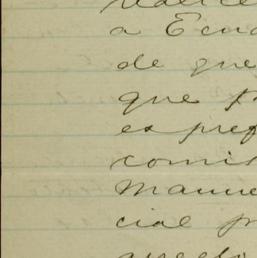 a Ecua
de que
que p
es pref
comis
Manue
cial p